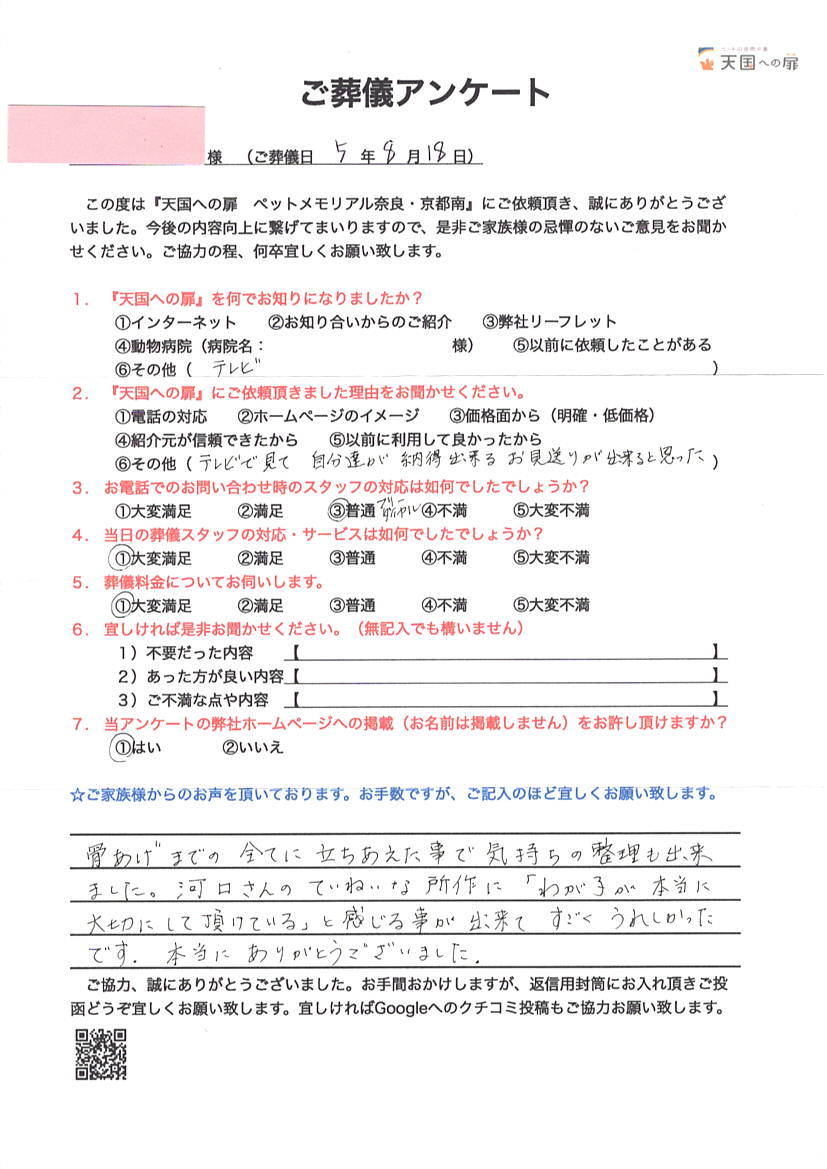 天国への扉
ご葬儀アンケート
様 (ご葬儀日 5 年 8 月 18 日)
この度は『天国への扉 ペットメモリアル奈良・京都南』にご依頼頂き、誠にありがとうござ
いました。今後の内容向上に繋げてまいりますので、是非ご家族様の忌憚のないご意見をお聞か
せください。ご協力の程、何卒宜しくお願い致します。
1. 『天国への扉』を何でお知りになりましたか?
①インターネット ②お知り合いからのご紹介 ③弊社リーフレット
④動物病院(病院名: 様) ⑤以前に依頼したことがある
⑥その他( テレビ )
2. 『天国への扉』にご依頼頂きました理由をお聞かせください。
①電話の対応 ②ホームページのイメージ ③価格面から(明確・低価格)
④紹介元が信頼できたから ⑤以前に利用して良かったから
⑥その他( テレビで見て 自分達が 納得出来る お見送りが出来ると思った )
3. お電話でのお問い合わせ時のスタッフの対応は如何でしたでしょうか?
①大変満足 ②満足 ③普通 フリーダイヤル ④不満 ⑤大変不満
4. 当日の葬儀スタッフの対応・サービスは如何でしたでしょうか?
①大変満足 ②満足 ③普通 ④不満 ⑤大変不満
5. 葬儀料金についてお伺いします。
①大変満足 ②満足 ③普通 ④不満 ⑤大変不満
6. 宜しければ是非お聞かせください。(無記入でも構いません)
1)不要だった内容 【 】
2)あった方が良い内容【 】
3)ご不満な点や内容 【 】
7. 当アンケートの弊社ホームページへの掲載(お名前は掲載しません)をお許し頂けますか?
①はい ②いいえ
☆ご家族様からのお声を頂いております。お手数ですが、ご記入のほど宜しくお願い致します。
骨あげまでの 全てに 立ちあえた事で 気持ちの 整理も出来
ました。河口さんの ていねいな 所作に 「わが子が 本当に
大切にして頂けている」と感じる事が 出来て すごく うれしかった
です. 本当に ありがとうございました.
ご協力、誠にありがとうございました。お手間おかけしますが、返信用封筒にお入れ頂きご投
函どうぞ宜しくお願い致します。宜しければGoogleへのクチコミ投稿もご協力お願い致します。